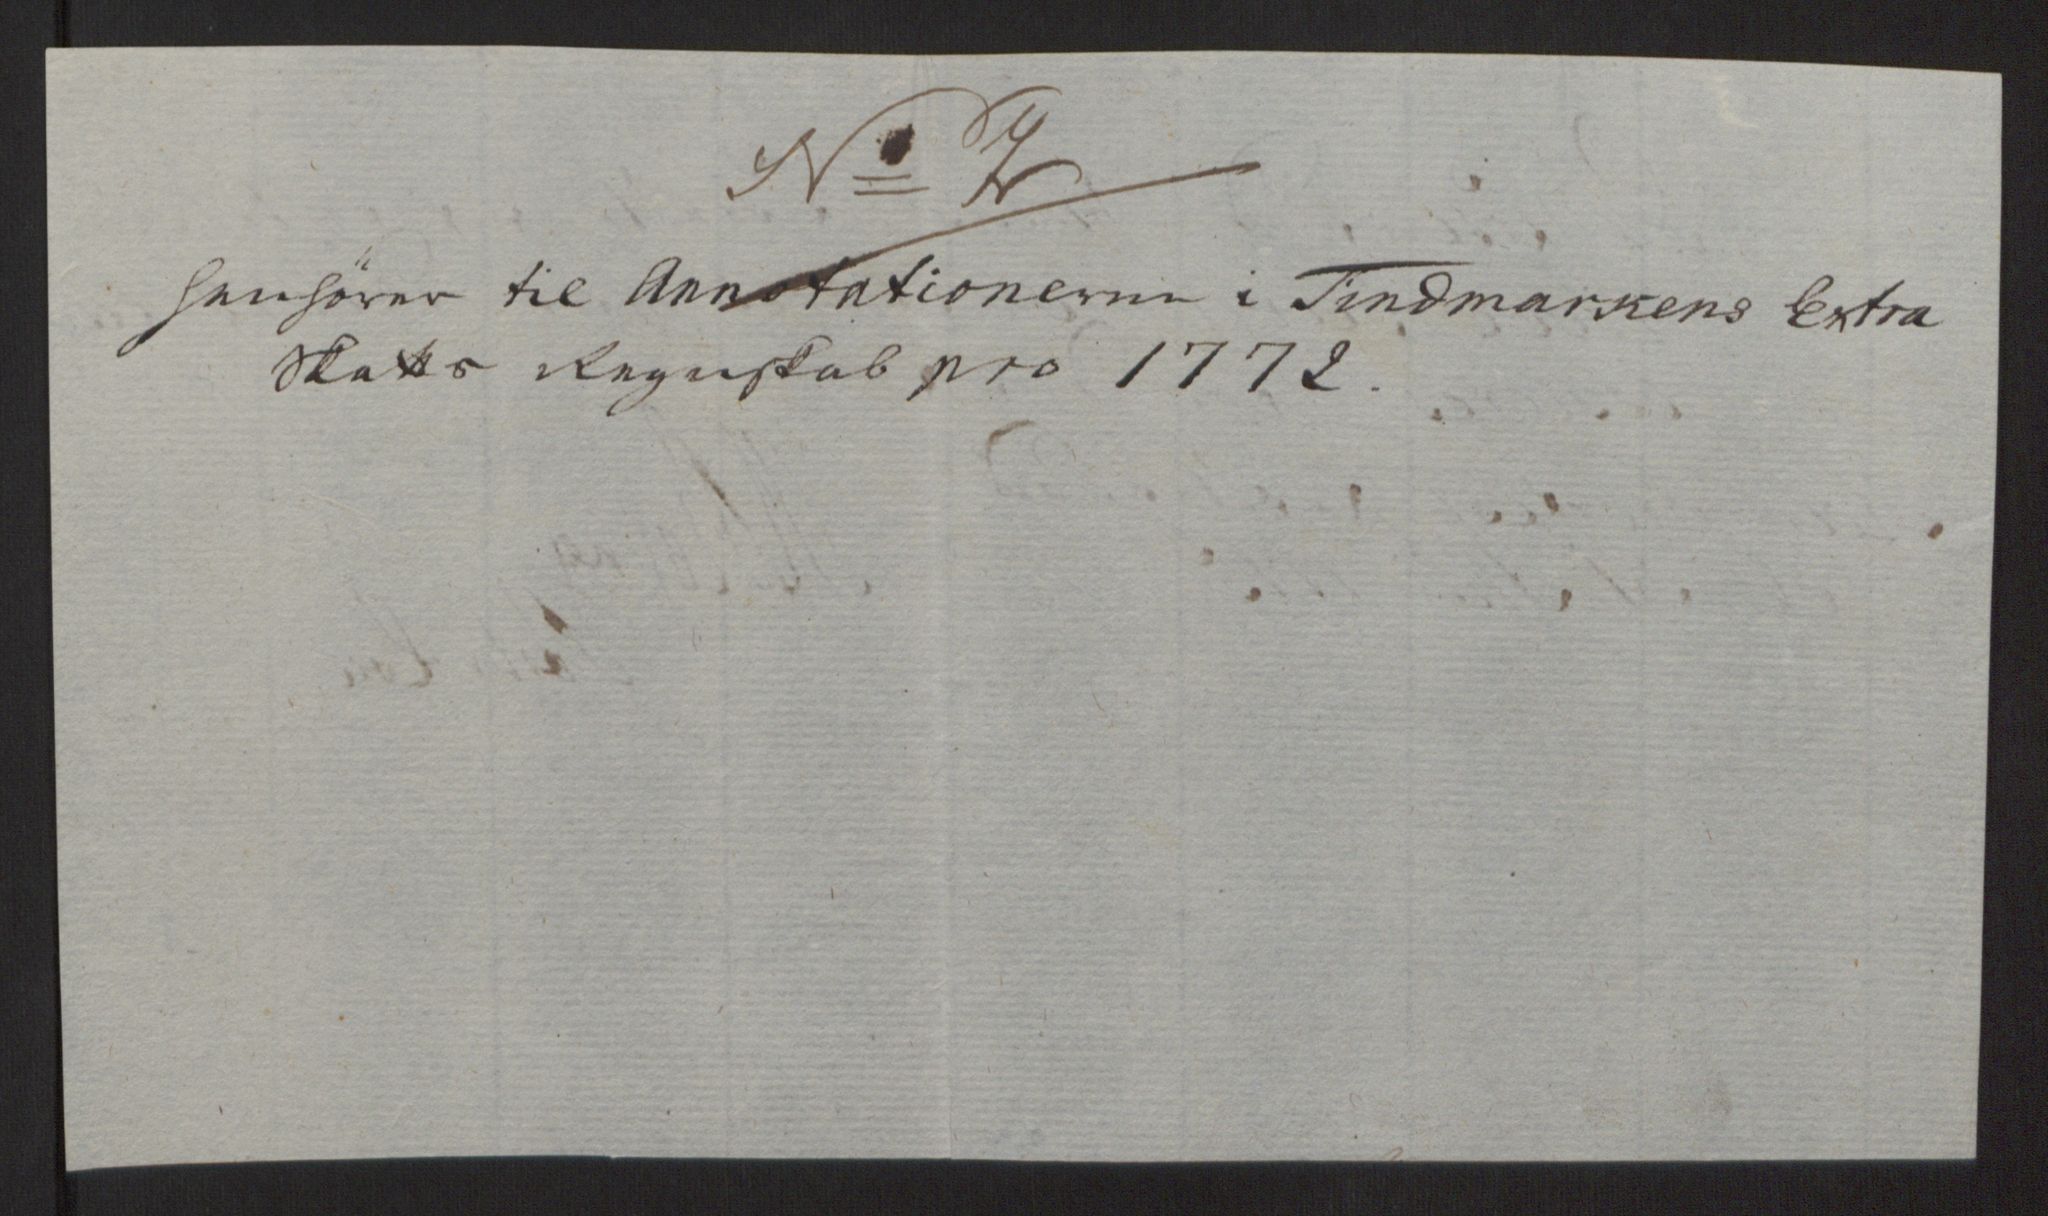 No 2
Henhörer til Annotationerne i Findmarkens Extra
Skatts Regnskab pro 1772.